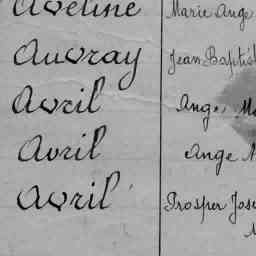 Aveline Marie Ange
Auvray Jean Baptis
Avril Ange, Ma
Avril Ange
Avril Prosper Jose